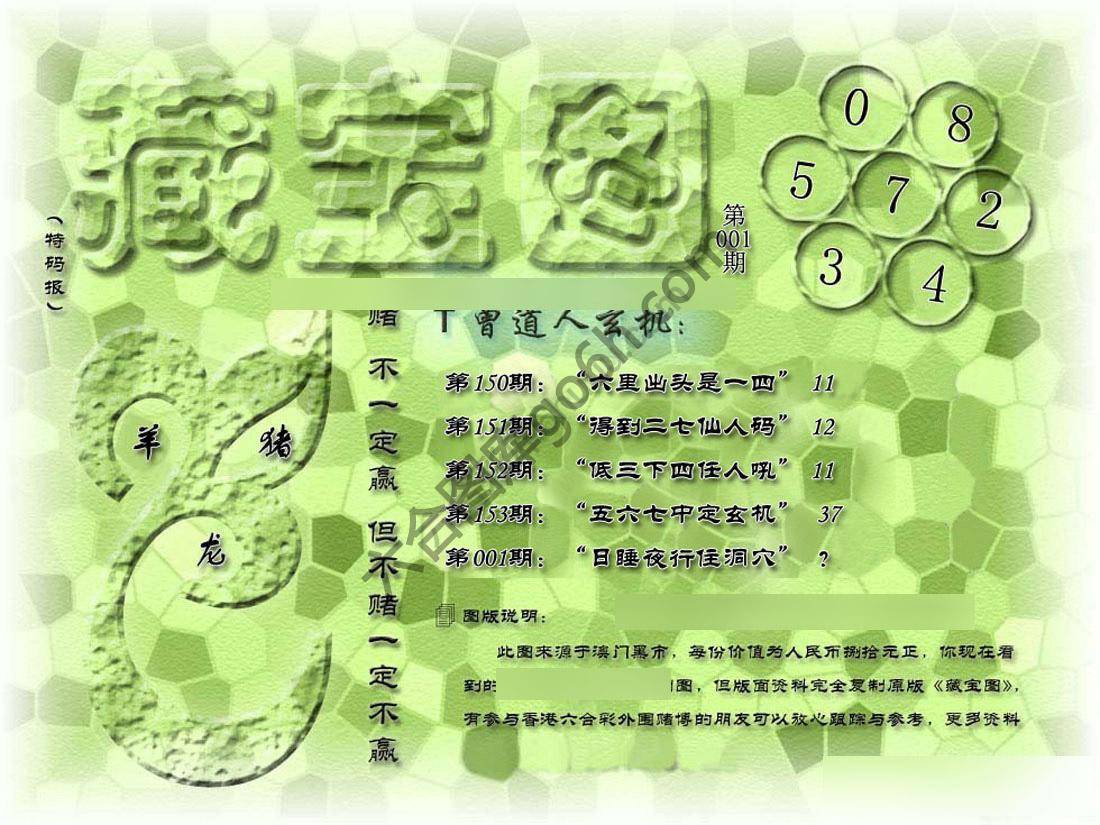 藏宝图
（特码报）
第001期
0 8
5 7 2
3 4
羊 猪
龙
赌不一定赢 但不赌一定不赢
曾道人玄机：
第150期：“六里出头是一四” 11
第151期：“得到二七仙人码” 12
第152期：“低三下四任人吼” 11
第153期：“五六七中定玄机” 37
第001期：“日睡夜行住洞穴” ？
图版说明：
此图来源于澳门黑市，每份价值为人民币捌拾元正，你现在看
到的 图，但版面资料完全复制原版《藏宝图》，
有参与香港六合彩外围赌博的朋友可以放心跟踪与参考，更多资料
六合图库go6h.com